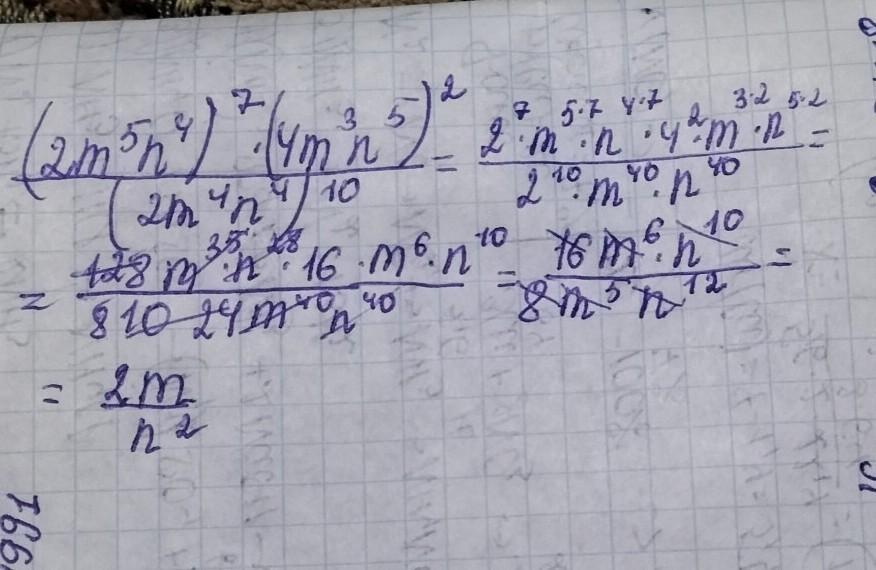 (2m⁵n⁴)⁷·(4m³n⁵)² / (2m⁴n⁴)¹⁰ = 2⁷·m⁵·⁷·n⁴·⁷·4²·m³·²·n⁵·² / 2¹⁰·m⁴⁰·n⁴⁰ =
= 128m³⁵·n²⁸·16·m⁶·n¹⁰ / 8 1024m⁴⁰n⁴⁰ = 16m⁶·n¹⁰ / 8m⁵n¹² =
= 2m / n²
1991